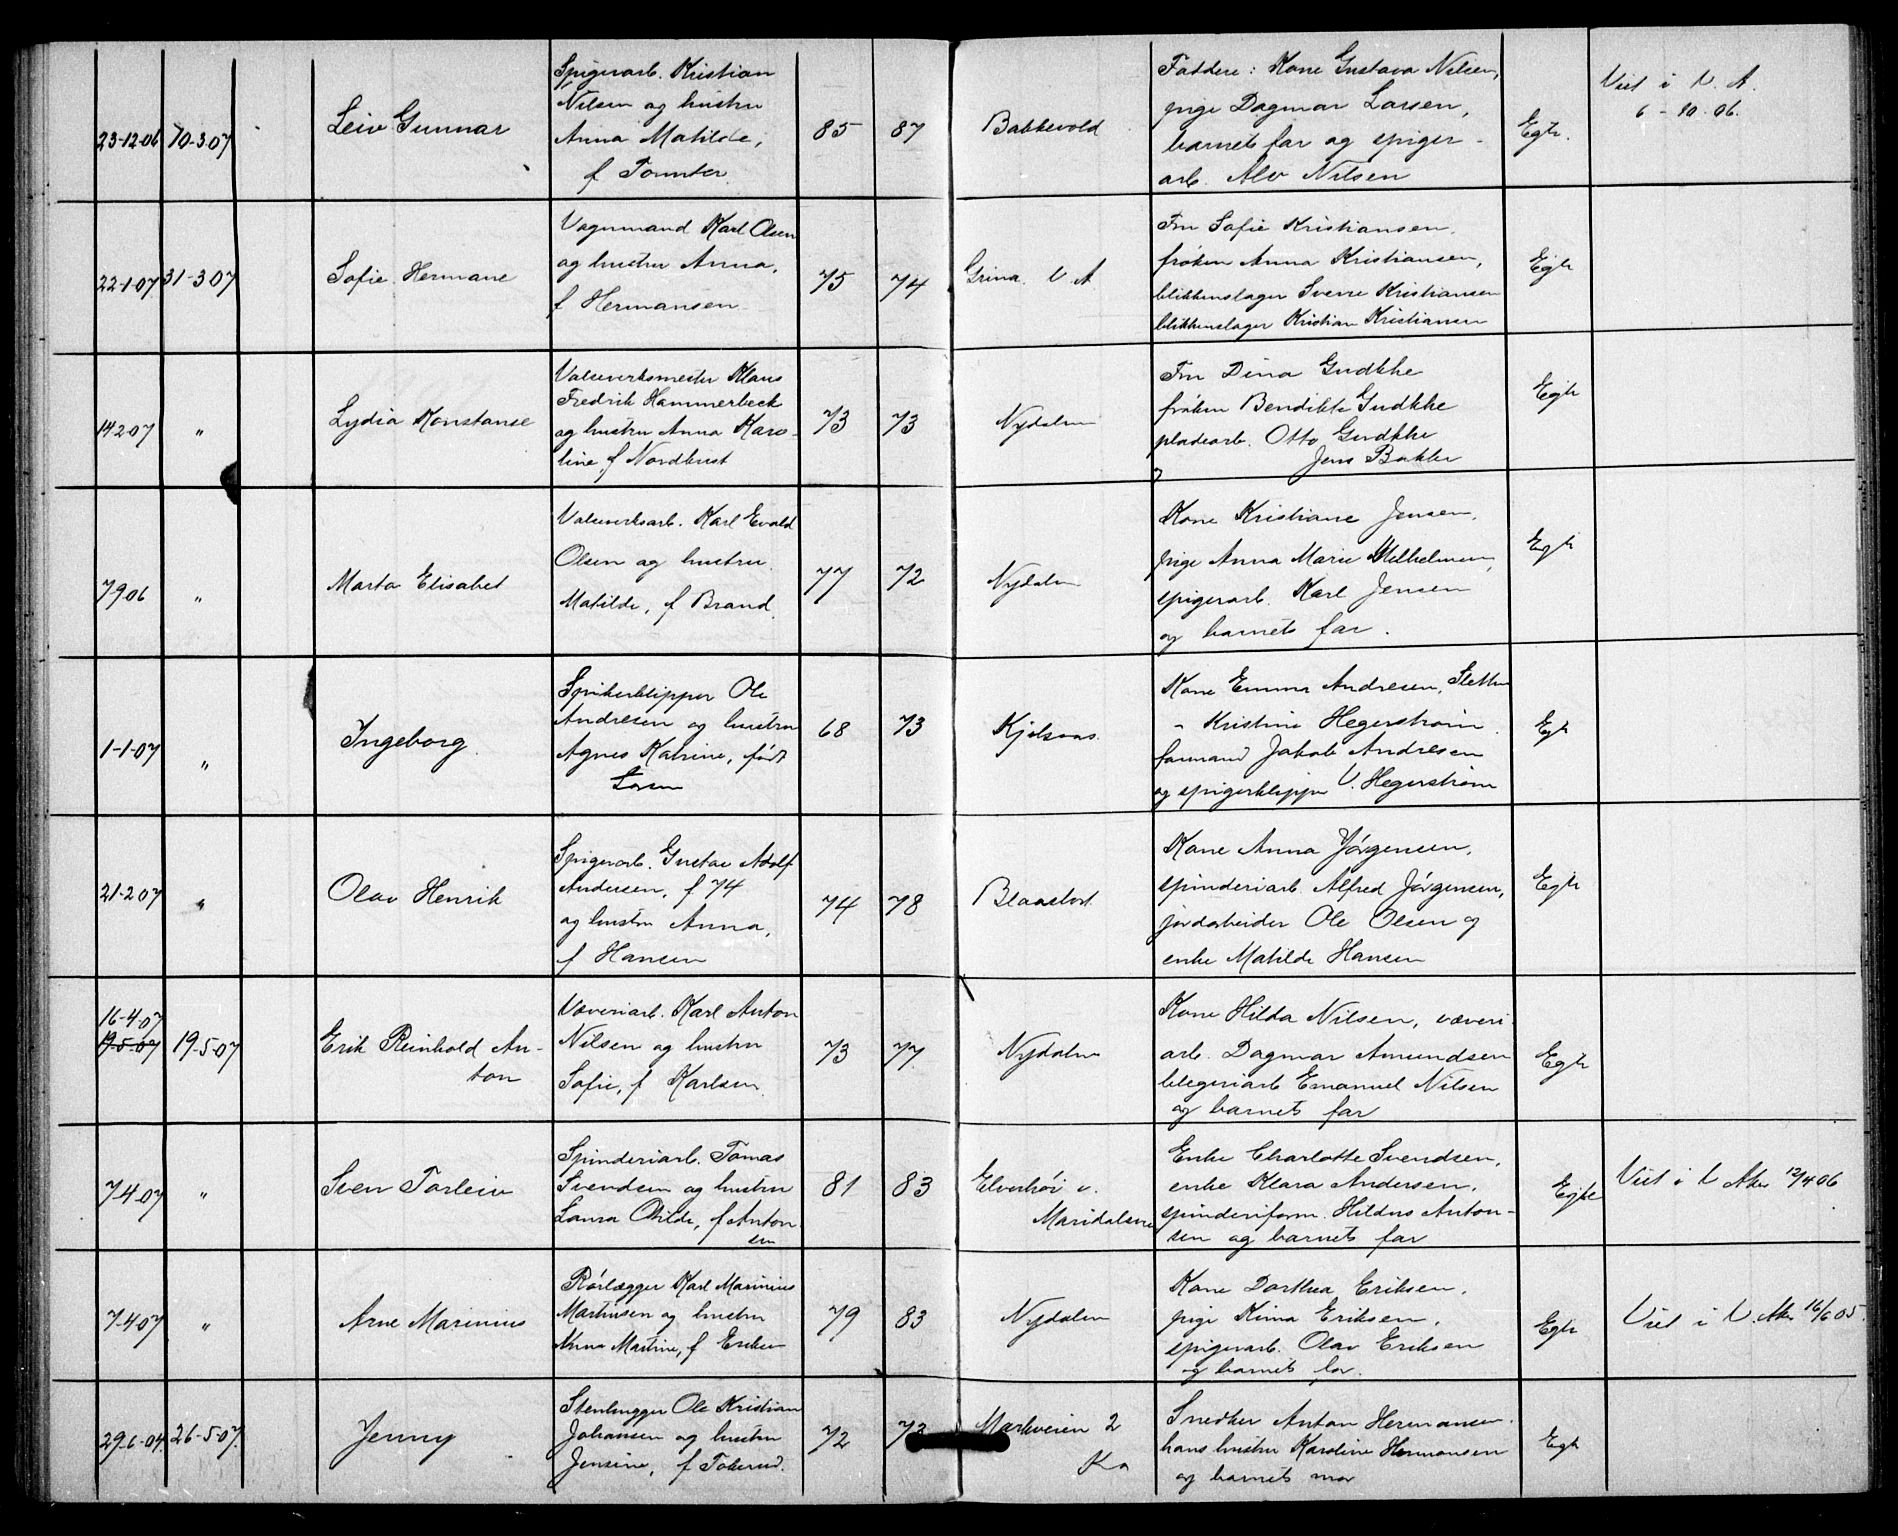 23-12-06 10-3-07
Leiv Gunnar
Spigerarb. Kristian
Nilsen og hustru
Anna Matilde,
f Tomter
85 87
Bakkevold
Faddere: Kone Gustava Nilsen,
pige Dagmar Larsen,
barnets far og spiger-
arb. Alv Nilsen
Egte.
Viet i V. A.
6-10-06.
22-1-07 31-3-07
Sofie Hermane
Vognmand Karl Olsen
og hustru Anna,
f Hermansen
75 74
Grina. V A.
Fru Sofie Kristiansen,
frøken Anna Kristiansen,
blikkenslager Sverre Kristiansen
blikkenslager Kristian Kristiansen
Egte
14-2-07 "
Lydia Konstanse
Valseverksmester Klaus
Fredrik Hammerbeck
og hustru Anna Karo-
line, f Nordkust
73 73
Nydalen
Fru Dina Gudkke
frøken Bendikte Gudkke
pladearb. Otto Gudkke
" Jens Bakke
Egte
7-9-06 "
Marta Elisabet
Valseverksarb. Karl Evald
Olsen og hustru
Matilde, f Brand.
77 72
Nydalen
Kone Kristiane Jensen,
pige Anna Marie Vilhelmsen,
spigerarb. Karl Jensen
og barnets far.
Egte
1-1-07 "
Ingeborg
Spikerklipper Ole
Andresen og hustru
Agnes Katrine, født
Larsen
68 73
Kjelsaas.
Kone Emma Andresen, Sletten
" Kristine Hegerstrøm
formand Jakob Andresen
og spigerklipper V. Hegerstrøm
Egte
21-2-07 "
Olav Henrik
Spigerarb. Gustav Adolf
Andersen, f 74
og hustru Anna,
f Hansen
74 78
Blaasbort
Kone Anna Jørgensen,
spinderiarb. Alfred Jørgensen,
jordarbeider Ole Olsen og
enke Matilde Hansen
Egte
16-4-07
19-5-07 19-5-07
Erik Reinhold An-
ton
Væveriarb. Karl Anton
Nilsen og hustru
Sofie, f Karlsen.
73 77.
Nydalen
Kone Hilda Nilsen, væveri-
arb. Dagmar Amundsen
blegeriarb Emanuel Nilsen
og barnets far
Egte
7-4-07 "
Sven Torleiv
Spinderiarb. Tomas
Svendsen og hustru
Laura Otilde, f Anton-
sen
81 83
Elverhøi v.
Maridalsvn
Enke Charlotte Svendsen,
enke Klara Andersen,
spinderiform. Hildus Anton-
sen og barnets far
Egte
Viet i V Aker 12/4 06
7-4-07 "
Arne Marinius
Rørlægger Karl Marinius
Martinsen og hustru
Anna Martine, f Eriksen
79 83
Nydalen
Kone Dorthea Eriksen,
pige Kima Eriksen,
spigerarb. Olav Eriksen
og barnets far.
Egte
Viet i V. Aker 16/6 05.
29-6-04 26-5-07.
Jenny
Stenhugger Ole Kristian
Johansen og hustru
Jensine, f Tokerud.
72 73
Markveien 2
Ka
Snedker Anton Hermansen.
hans hustru Karoline Hermansen
og barnets mor
Egte